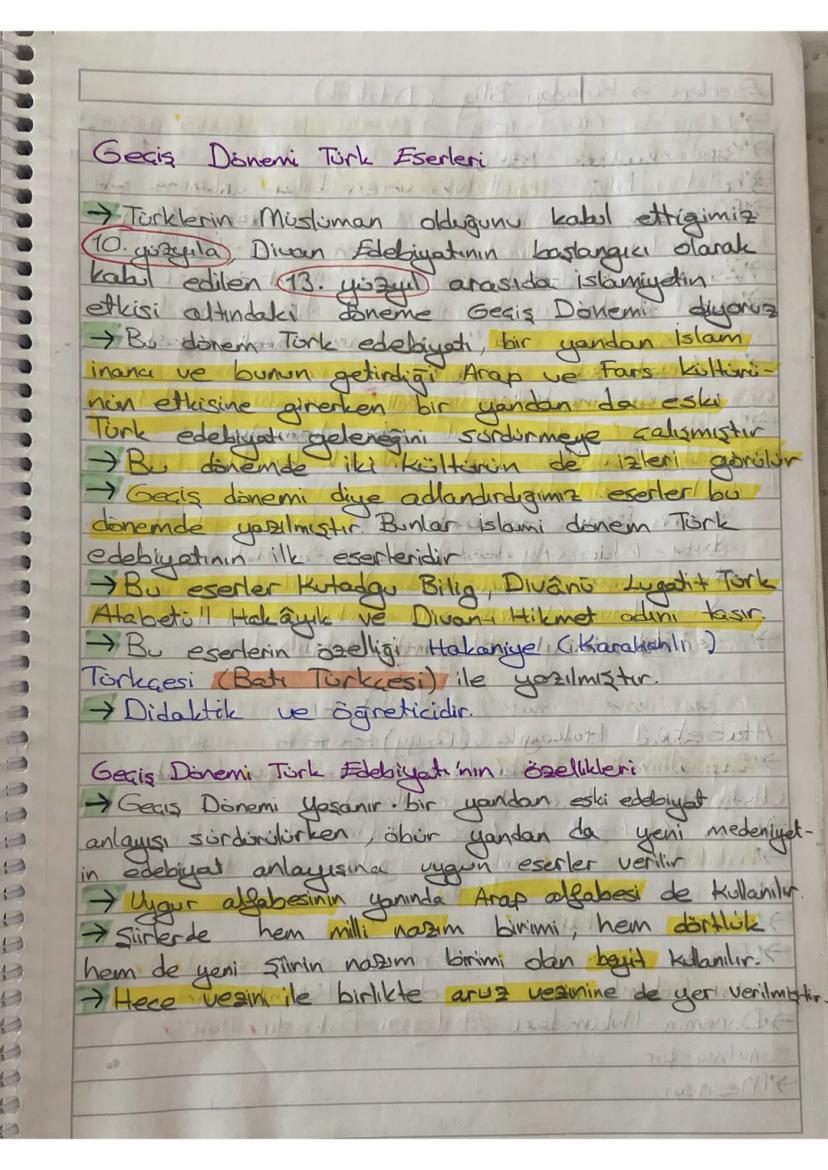 Geçiş Dönemi Türk Eserleri
→ Türklerin Müslüman olduğunu kabul ettiğimiz
10. yüzyıla, Divan Edebiyatının başlangıcı olarak
kabul edilen 13. yüzyıl arasıda islamiyetin
etkisi altındaki döneme Geçiş Dönemi diyoruz
→ Bu dönem Türk edebiyatı, bir yandan İslam
inancı ve bunun getirdiği Arap ve Fars kültürü-
nün etkisine girerken bir yandan da eski
Türk edebiyatı geleneğini sürdürmeye çalışmıştır
→ Bu dönemde iki kültürün de izleri görülür
→ Geçiş dönemi diye adlandırdığımız eserler bu
dönemde yazılmıştır. Bunlar islami dönem Türk
edebiyatının ilk eserleridir
→ Bu eserler Kutadgu Bilig, Divânü Lugatit Türk
Atabetü'l Hakâyık ve Divan-ı Hikmet adını taşır.
→ Bu eserlerin özelliği Hakaniye (Karahanlı)
Türkçesi (Batı Türkçesi) ile yazılmıştır.
→ Didaktik ve öğreticidir.
Geçiş Dönemi Türk Edebiyatı'nın özellikleri
→ Geçiş Dönemi yaşanır. bir yandan eski edebiyat
anlayışı sürdürülürken, öbür yandan da yeni medeniyet-
in edebiyat anlayışına uygun eserler verilir
→ Uygur alfabesinin yanında Arap alfabesi de kullanılır.
→ Şiirlerde hem milli nazım birimi, hem dörtlük
hem de yeni şiirin nazım birimi olan beyit kullanılır.
→ Hece vezini ile birlikte aruz veznine de yer verilmiştir.